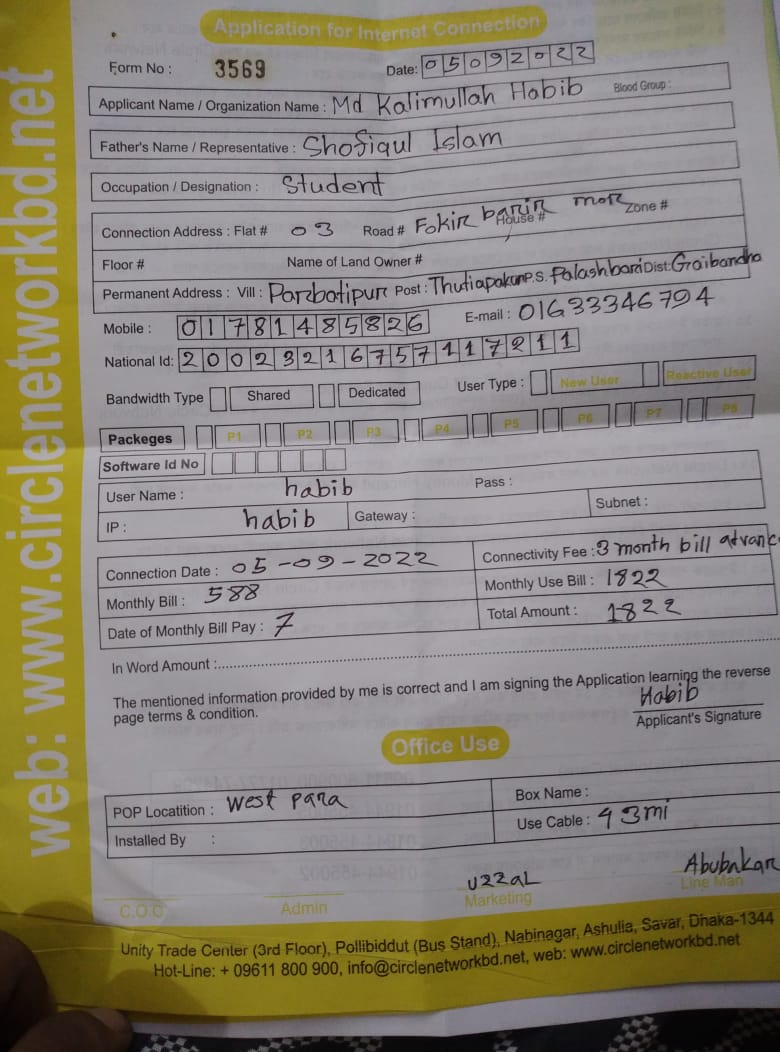 web: www.circlenetworkbd.net
Application for Internet Connection
Form No : 3569 Date: 05092022
Applicant Name / Organization Name : Md Kalimullah Habib Blood Group :
Father's Name / Representative : Shofiqul Islam
Occupation / Designation : Student
Connection Address : Flat # 03 Road # Fokir barir mor House # Zone #
Floor # Name of Land Owner #
Permanent Address : Vill : Parbotipur Post : Thutiapakur P.S. Palashbari Dist: Gaibandha
Mobile : 01781485826 E-mail : 01633346794
National Id: 20023216757117211
Bandwidth Type Shared Dedicated User Type : New User Reactive User
Packeges P1 P2 P3 P4 P5 P6 P7 P8
Software Id No
User Name : habib Pass :
IP : habib Gateway : Subnet :
Connection Date : 05-09-2022 Connectivity Fee : 3 month bill advanc
Monthly Bill : 588 Monthly Use Bill : 1822
Date of Monthly Bill Pay : 7 Total Amount : 1822
In Word Amount :
The mentioned information provided by me is correct and I am signing the Application learning the reverse
page terms & condition.
Habib
Applicant's Signature
Office Use
POP Locatition : West para Box Name :
Installed By : Use Cable : 43mi
Uzzal Abubakar
C.O.O Admin Marketing Line Man
Unity Trade Center (3rd Floor), Pollibiddut (Bus Stand), Nabinagar, Ashulia, Savar, Dhaka-1344
Hot-Line: + 09611 800 900, info@circlenetworkbd.net, web: www.circlenetworkbd.net